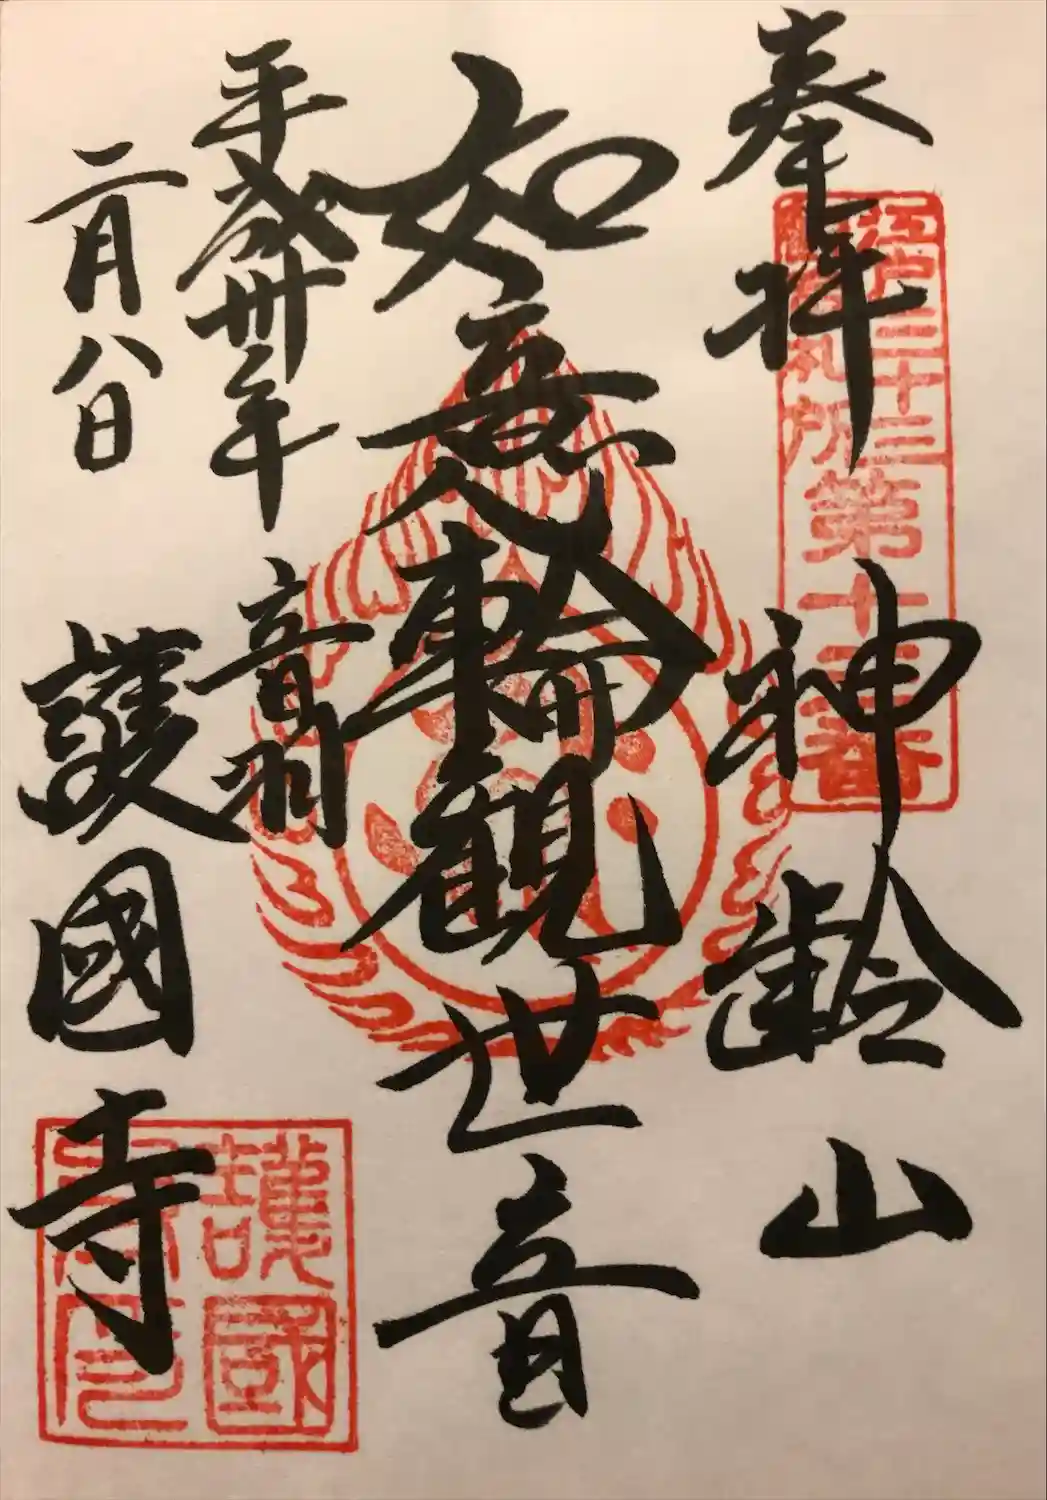 奉拝
江戸三十三
札所第十三番
神齢山
如意輪観世音
平成卅年
二月八日
音羽
護國寺
護國
寺印